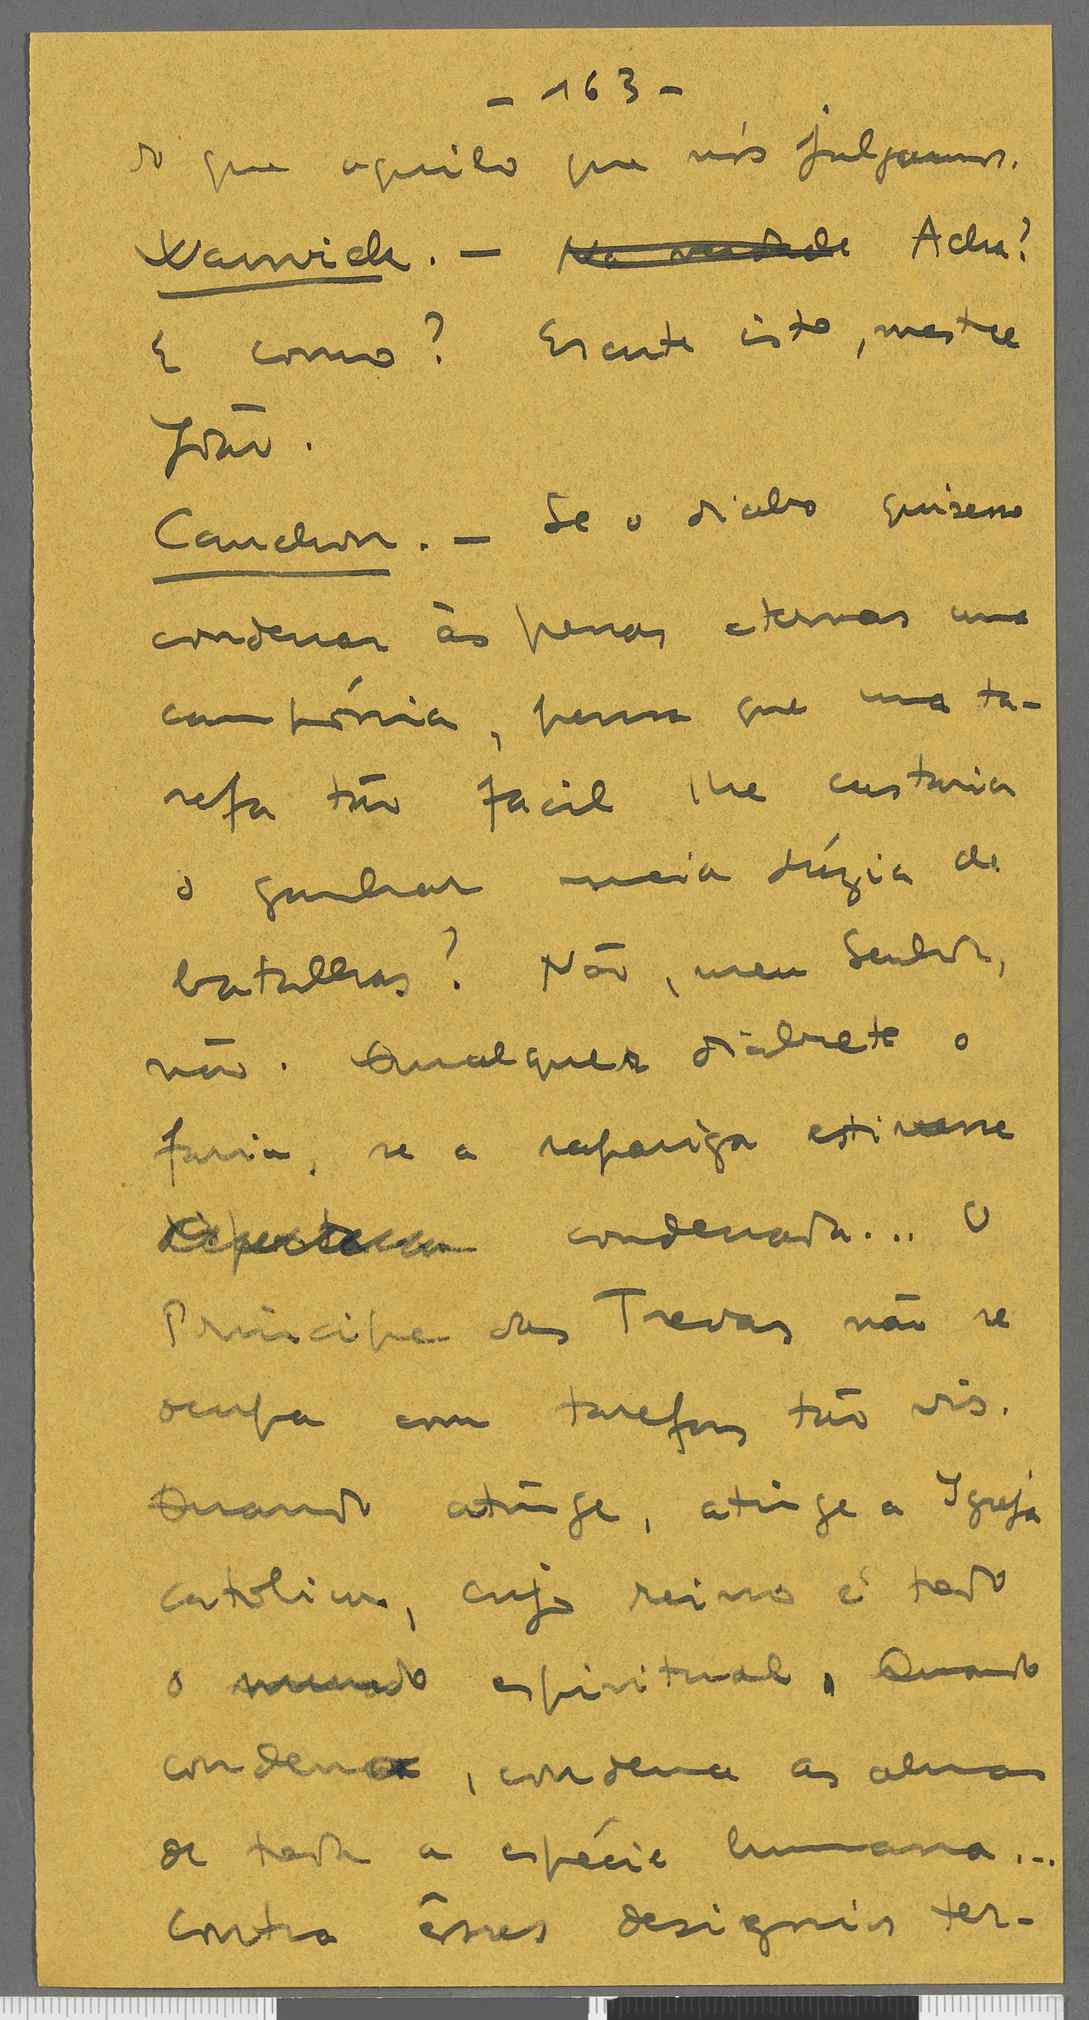 - 163 -
do que aquilo que nós julgamos.
Warwick. - Na verdade Acha?
E como? Escute isto, mestre
João.
Cauchon. - Se o diabo quisesse
condenar às penas eternas uma
campónia, pensa que uma ta-
refa tão fácil lhe custaria
o ganhar meia dúzia de
batalhas? Não, meu Senhor,
não. Qualquer diabrete o
faria, se a rapariga estivesse
condenada... O
Príncipe das Trevas não se
ocupa com tarefas tão vis.
Quando atinge, atinge a Igreja
católica, cujo reino é todo
o mundo espiritual. Quando
condena, condena as almas
de toda a espécie humana...
Contra êsses desígnios ter-